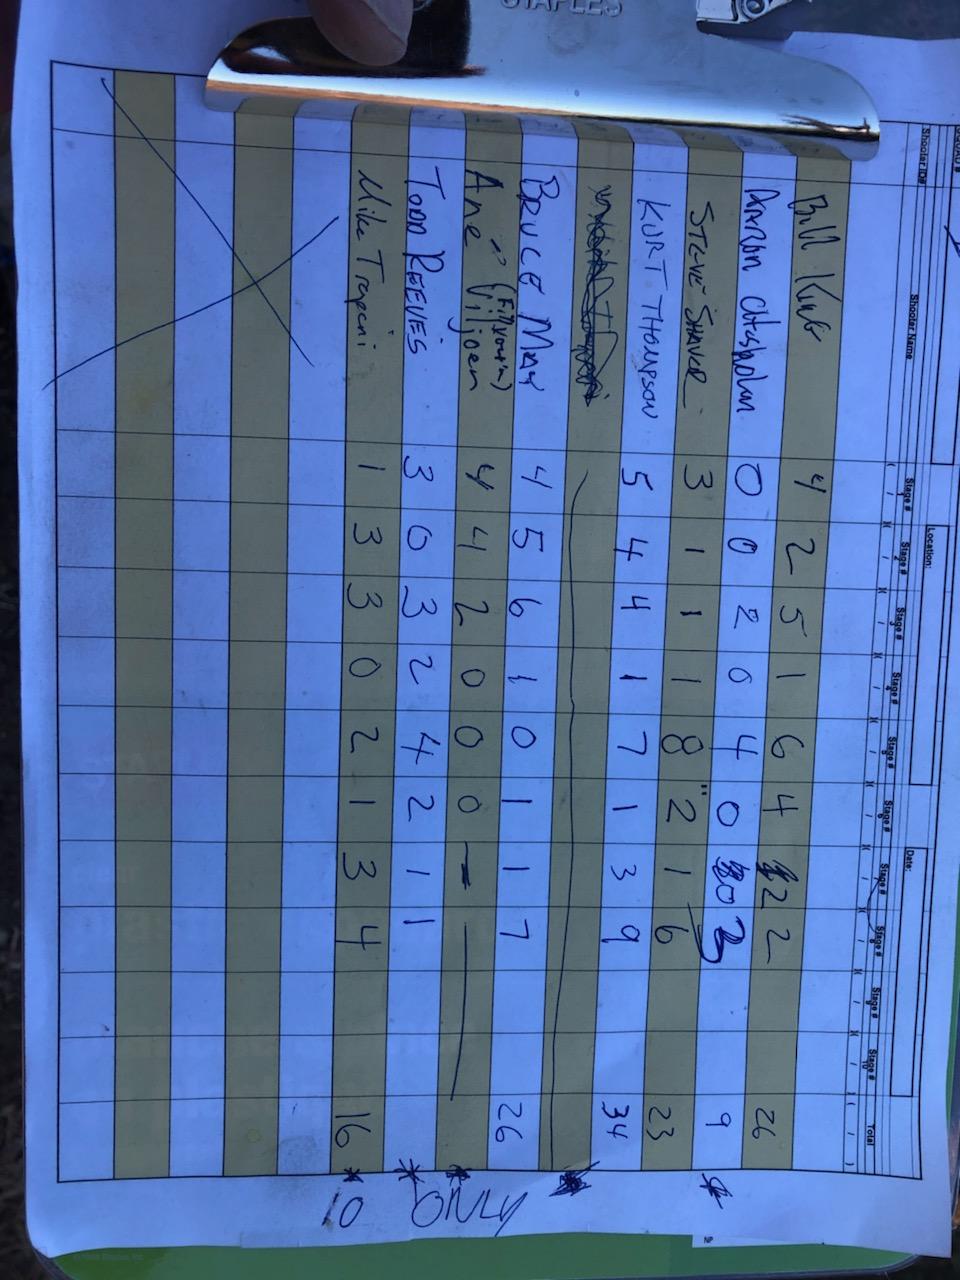 STAPLES
Location:
Date:
Shooter ID# Shooter Name Stage # 1 Stage # 2 Stage # 3 Stage # 4 Stage # 5 Stage # 6 Stage # 7 Stage # 8 Stage # 9 Stage # 10 Total
Bill King 4 2 5 1 6 4 2 2 26
0 0 2 0 4 0 0 3 9
STEVE SHAVER 3 1 1 1 8 2 1 6 23
KURT THOMPSON 5 4 4 1 7 1 3 9 34
BRUCE MAY 4 5 6 1 0 1 1 7 26
Ané Viljoen 4 4 2 0 0 0 -
TODD REEVES 3 0 3 2 4 2 1 1
Mike Trapani 1 3 3 0 2 1 3 4 16
* ONLY
NP